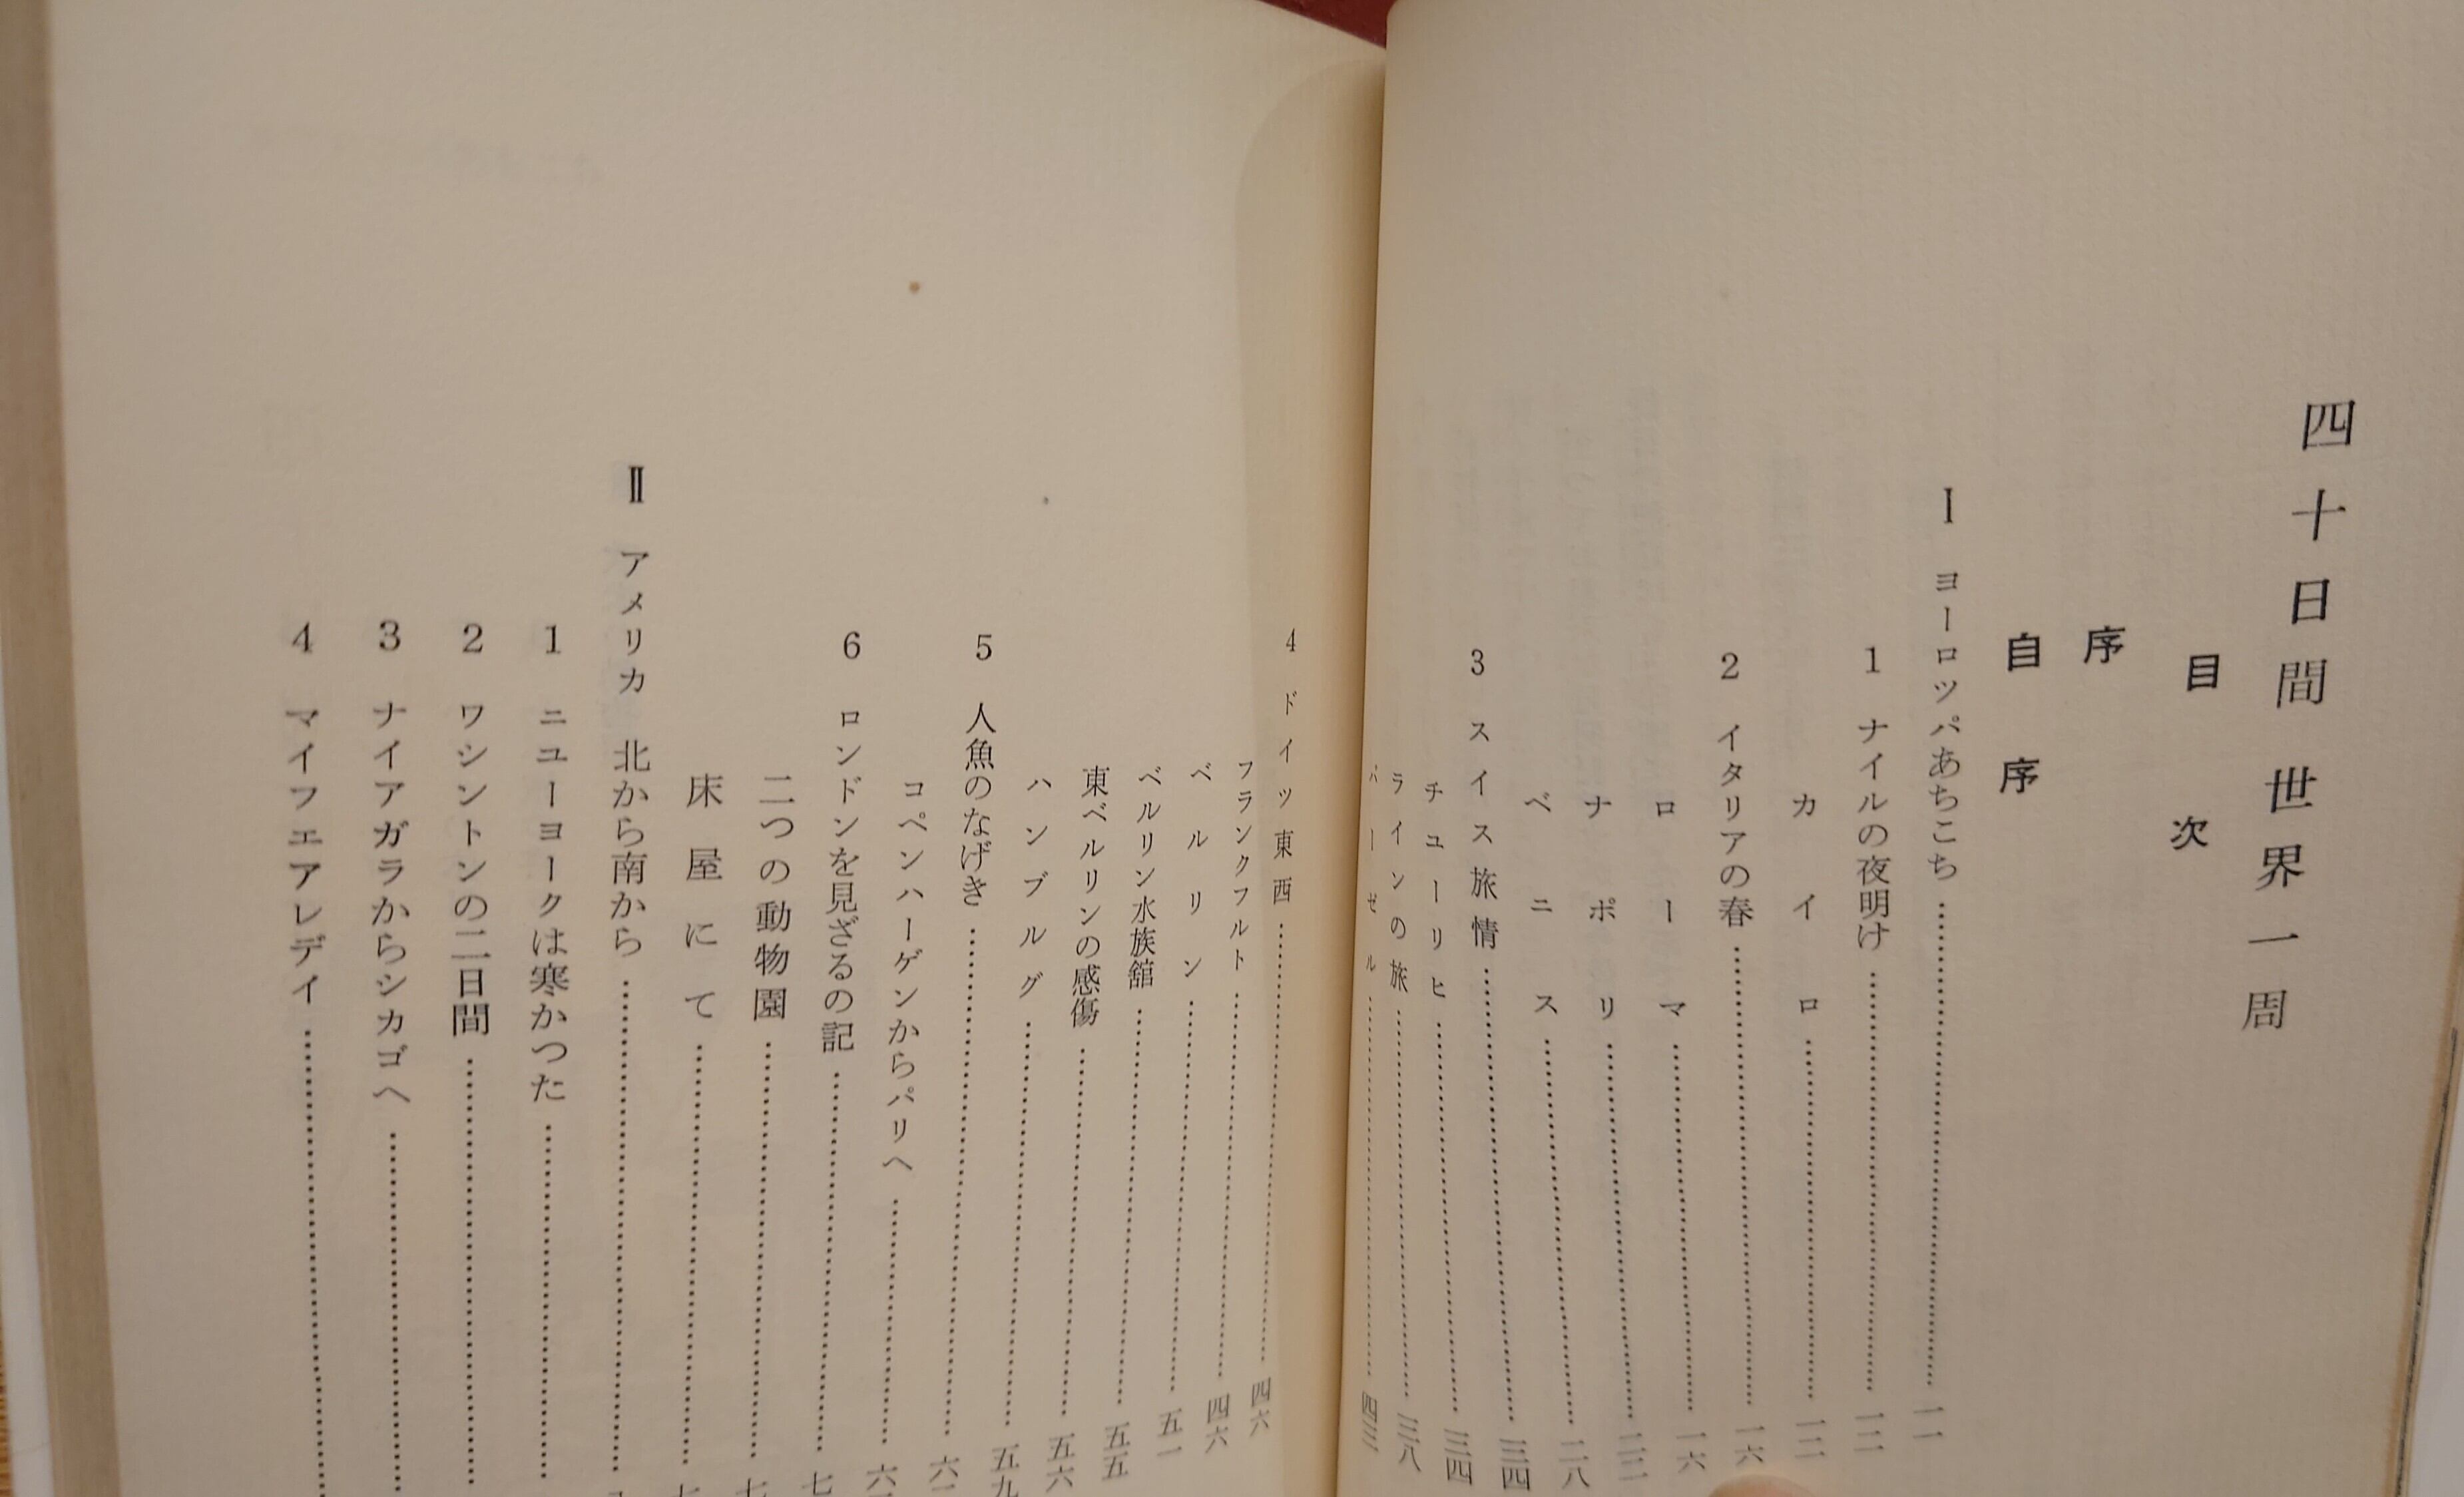 四十日間世界一周
目次
序
自序
Ⅰ ヨーロツパあちこち……一一
1 ナイルの夜明け……一二
カイロ……一二
2 イタリアの春……一六
ローマ……一六
ナポリ……二二
ベニス……二八
3 スイス旅情……三四
チユーリヒ……三四
ラインの旅……三八
バーゼル……四三
4 ドイツ東西……四六
フランクフルト……四六
ベルリン……五一
ベルリン水族舘……五五
東ベルリンの感傷……五六
ハンブルグ……五九
5 人魚のなげき……
コペンハーゲンからパリへ……
6 ロンドンを見ざるの記……
二つの動物園……
床屋にて……
Ⅱ アメリカ 北から南から……
1 ニユーヨークは寒かつた……
2 ワシントンの二日間……
3 ナイアガラからシカゴへ……
4 マイフエアレデイ……